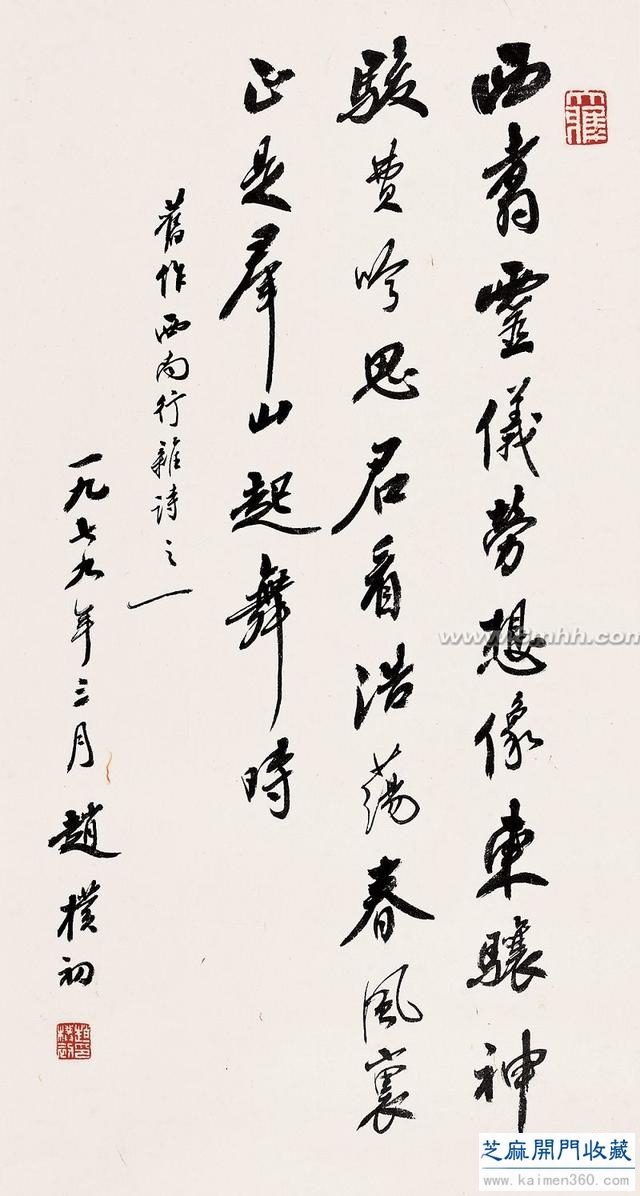 西翥靈儀勞想像東驤神
駿費吟思君看浩蕩春風裏
正是羣山起舞時
舊作西南行雜詩之一
一九七九年三月趙樸初
芝麻開門收藏
www.kaimen360.com